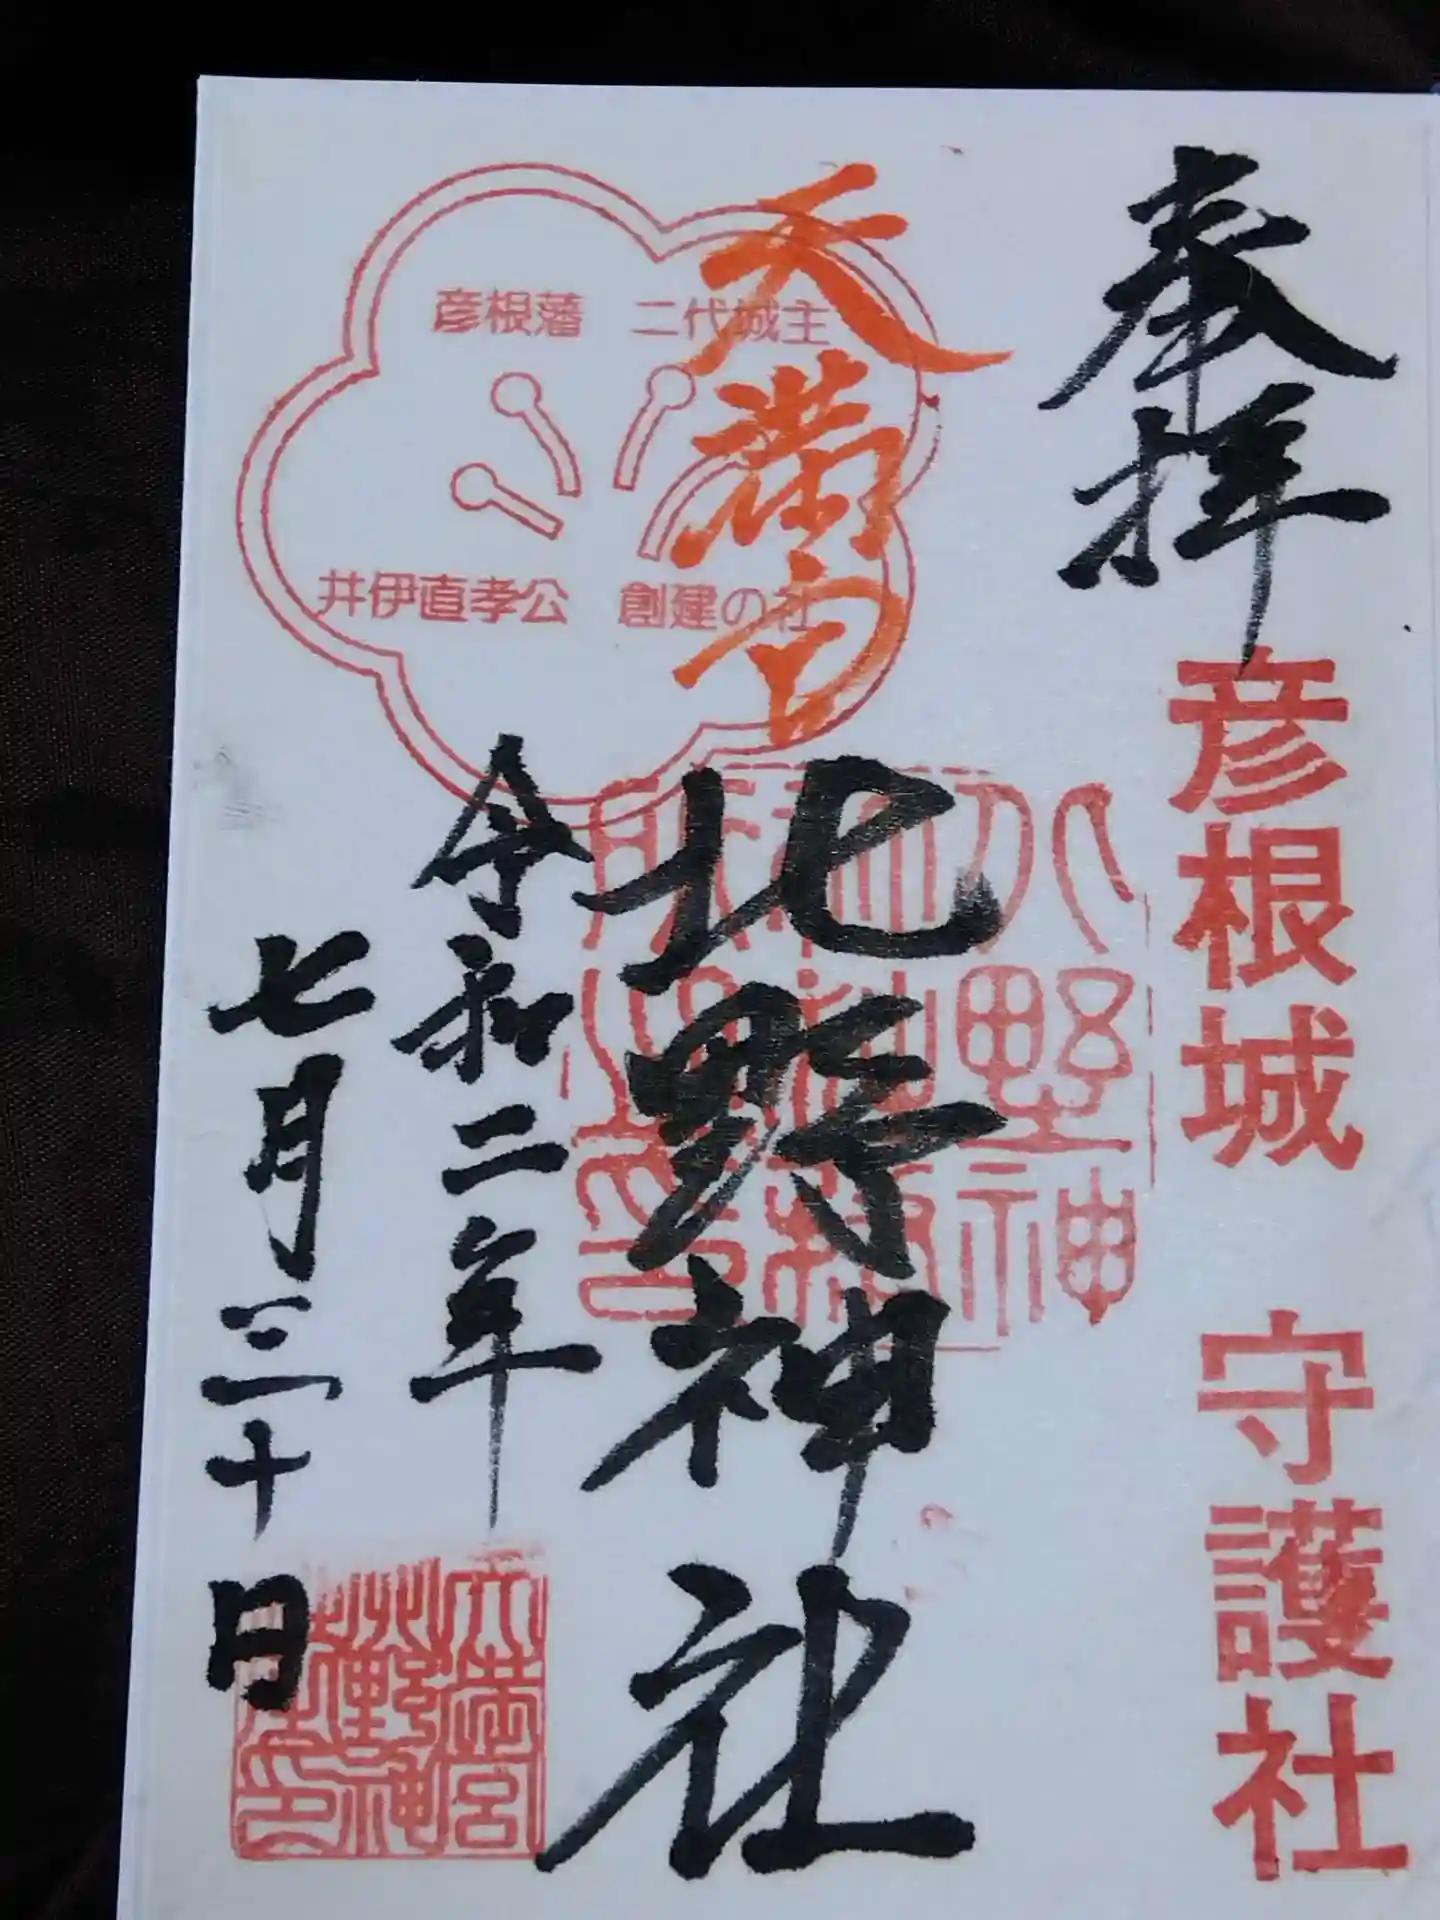 奉拝
彦根城 守護社
天満宮
北野神社
彦根藩 二代城主
井伊直孝公 創建の社
令和二年
七月三十日
天満宮
北野神